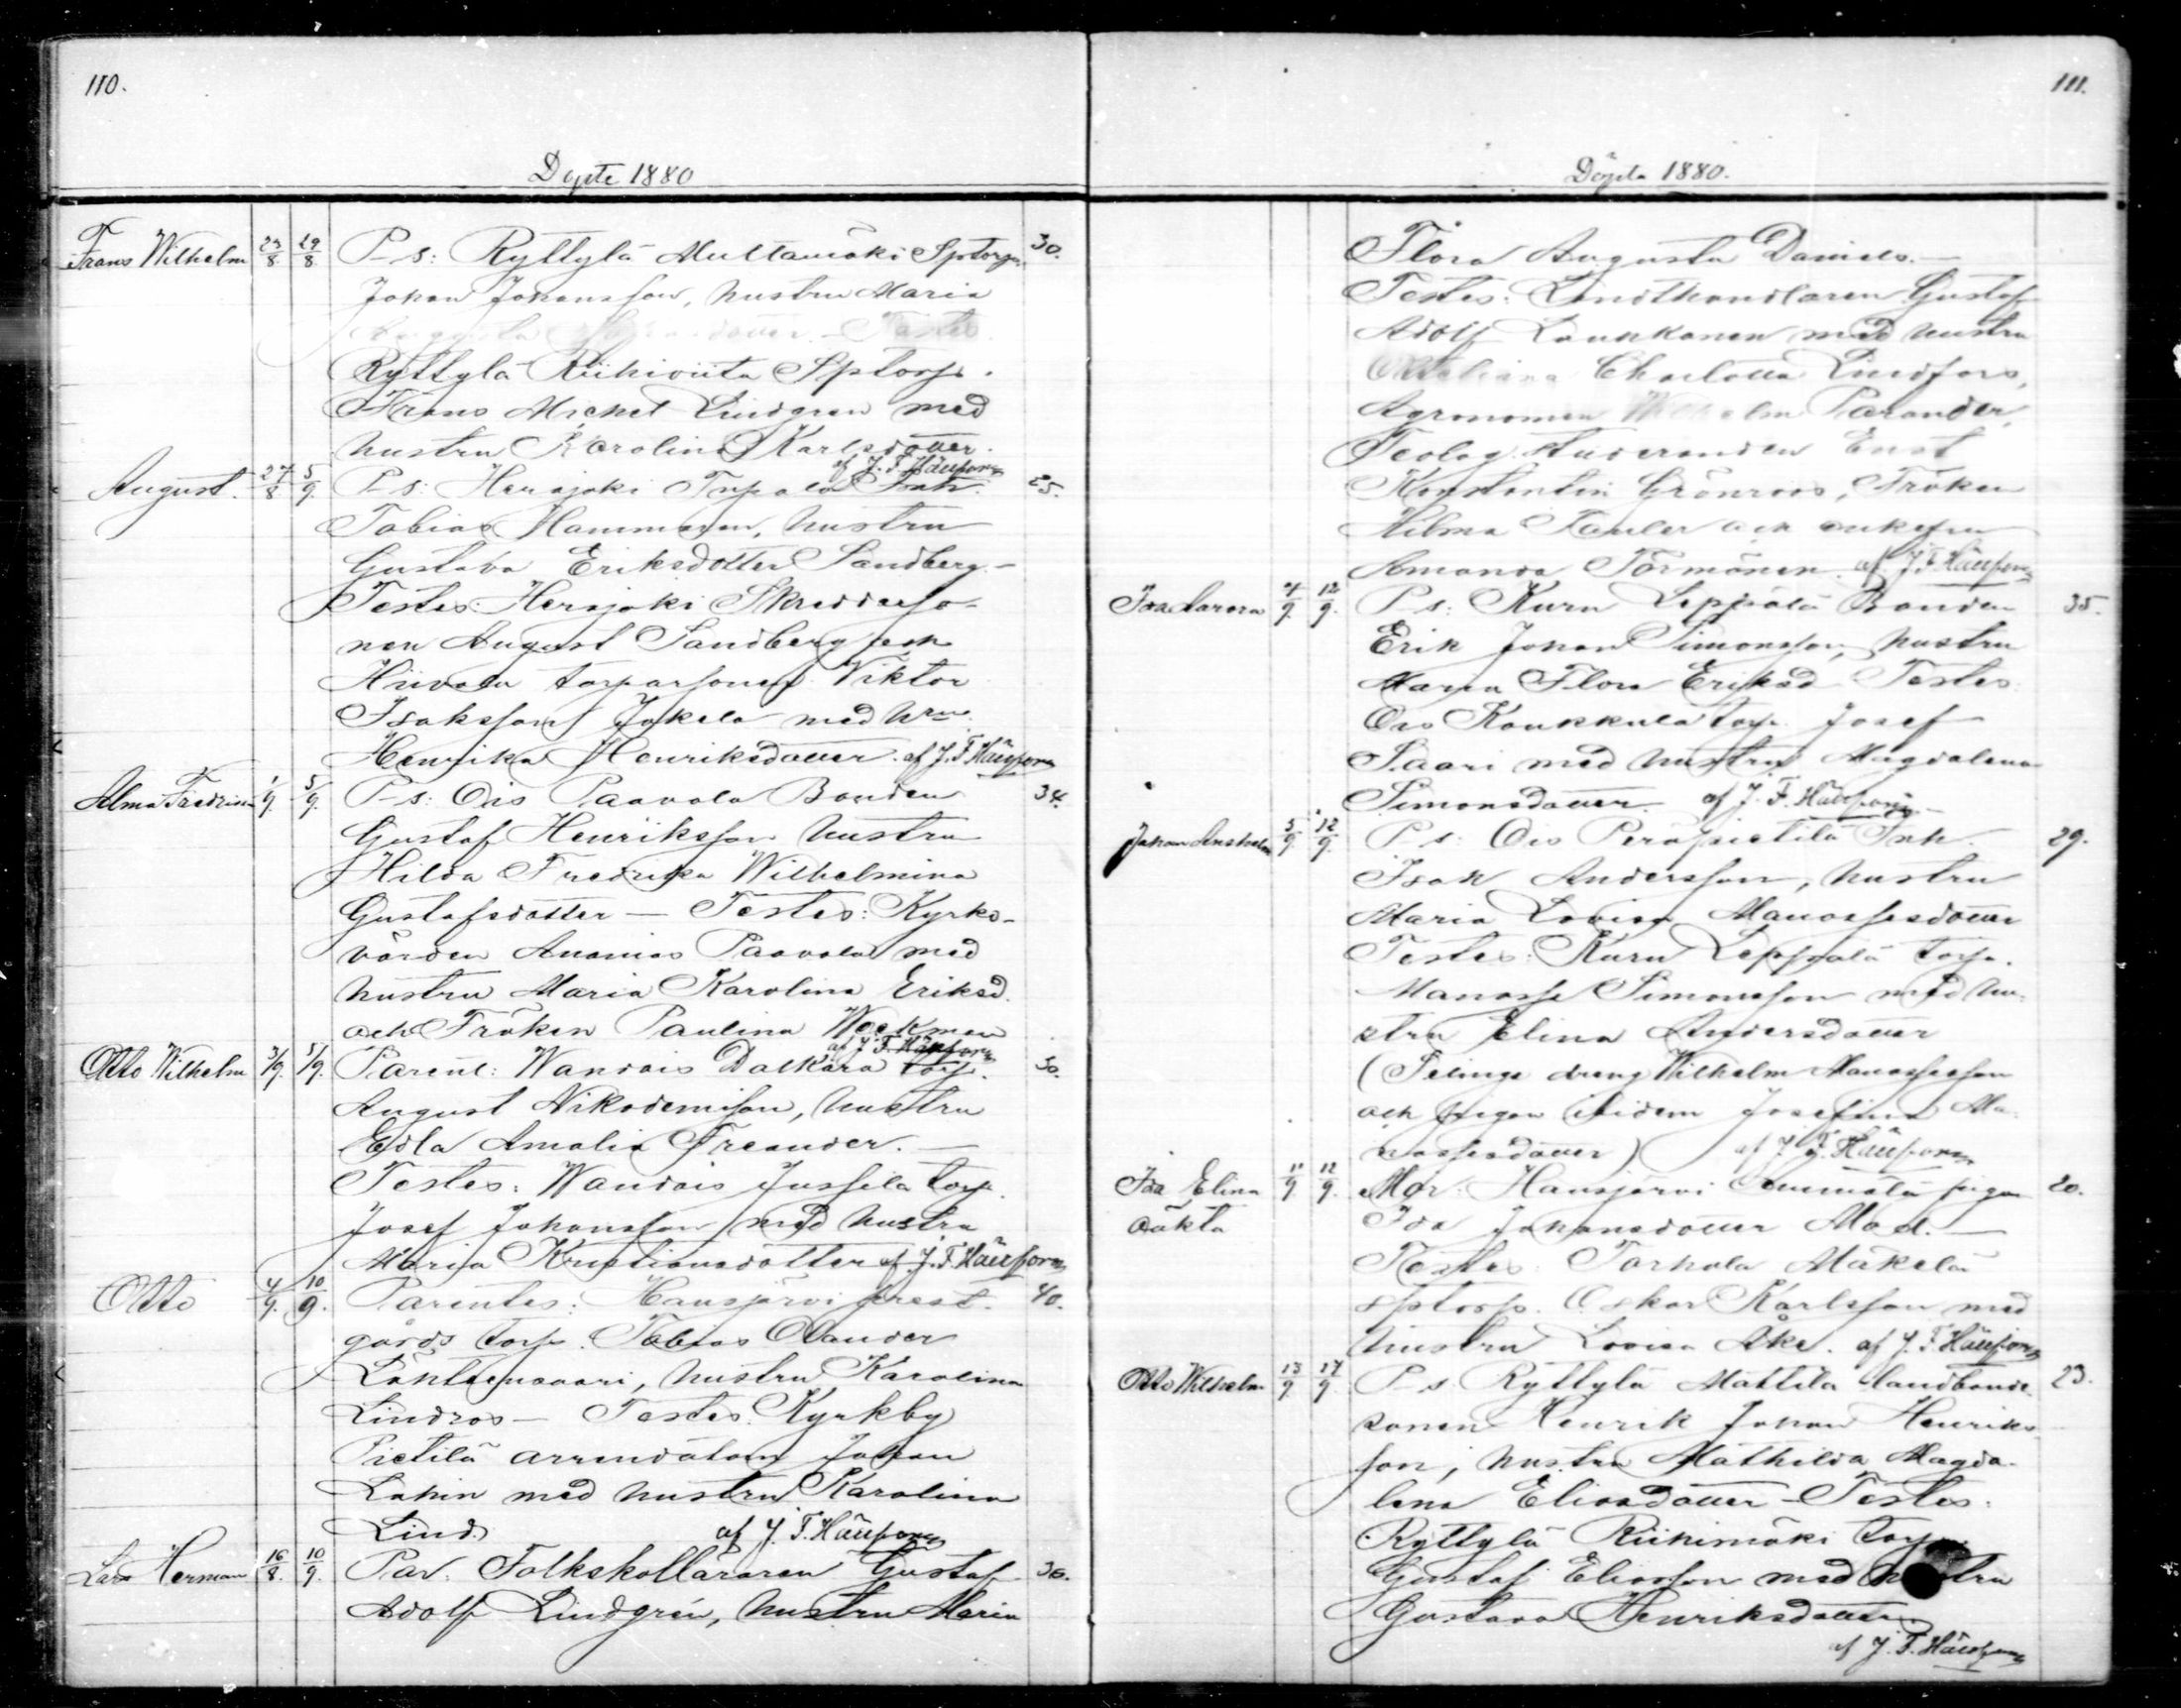 110.
Döpte 1880
Frans Wilhelm 23/8 29/8 P-s: Ryttylä Multamäki Sptorp. 30.
Johan Johansson, hustru Maria
Testes
Ryttylä Riihiviita Sptorp.
Frans Michel Lindgren med
hustru Karolina Karlsdotter.
af J. F. Häyrén
August. 27/8 5/9 P-s: Herajoki Inh. 25.
Tobias Hammaren, hustru
Gustava Eriksdotter Sandberg.-
Testes: Herajoki Skreddarso-
nen August Sandberg och
torparsonen Viktor
Isaksson Jokela med hru
Henrika Henriksdotter. af J. F.
Alma Fredrika 1/9 5/9 P-s: Ois Paavola Bonden 34.
Gustaf Henriksson hustru
Hilda Fredrika Wilhelmina
Gustafsdotter — Testes: Kyrko-
vården Ananias Paavola med
hustru Maria Karolina Eriksd.
och Fröken Paulina Weckman
af J. F.
Otto Wilhelm 3/9 5/9 Parent: Wandais Dalkara torp. 30.
August Nikodemison, hustru
Edla Amalia Freander. —
Testes: Wandais Jussila torp.
Josef Johansson med hustru
Maria Kristiansdotter af J. F.
Otto 4/9 10/9 Parentes: Hausjärvi prest- 40.
gårds torp. Tobias Olander
hustru Karolina
Lindros — Testes. Kyrkby
Pietilä arrendatorn Johan
Lahin med hustru Karolina
Lind. af J. F.
Lars Herman 16/8 10/9 Par. Folkskolläraren Gustaf 36.
Adolf Lindgrén, hustru Maria
111.
Döpta 1880.
Flora Augusta Daniels. —
Testes: Landthandlaren Gustaf
Adolf Laukkanen med hustru
Charlotta Lindfors,
Agronomen Wilhelm Parander,
Teolog. Studeranden Enst
Konstantin Grönroos, Fröken
Hilma och enkefru
Amanda Törmänen. af J. F.
Ida Aurora 4/9 12/9 P-s: Kuru Leppälä Bonden 35.
Erik Johan Simonsson, hustru
Maria Flora Eriksd. Testes:
Ois Koukkula torp. Josef
Saari med hustru Magdalena
Simonsdotter. af J. F.
Johan Anshelm 5/9 12/9 P-s: Ois Peräpietilä Inh. 29.
Isak Andersson, hustru
Maria Lovisa Manassesdotter
Testes: Kuru Leppälä torp.
Manasse Simonsson med hu-
stru Elina Andersdotter
( dreng Wilhelm Manassesson
och pigan ibidem Josefina Ma-
nassesdotter) af J. F.
Ida Elina 11/9 12/9 Mor: Hausjärvi Ammälä pigan 20.
oäkta Ida Johansdotter Mod. —
Testes: Torhola Mäkelä
sptorp. Oskar Karlsson med
hustru Lovisa Åke. af J. F.
Otto Wilhelm 13/9 17/9 P-s Ryttylä Mattila landbonde- 23.
sonen Henrik Johan Henriks-
son, hustru Mathilda Magda-
lena Eliasdotter — Testes:
Ryttylä Riihimäki torp.
Gustaf Eliasson med hustru
Gustava Henriksdotter.
af J. F.